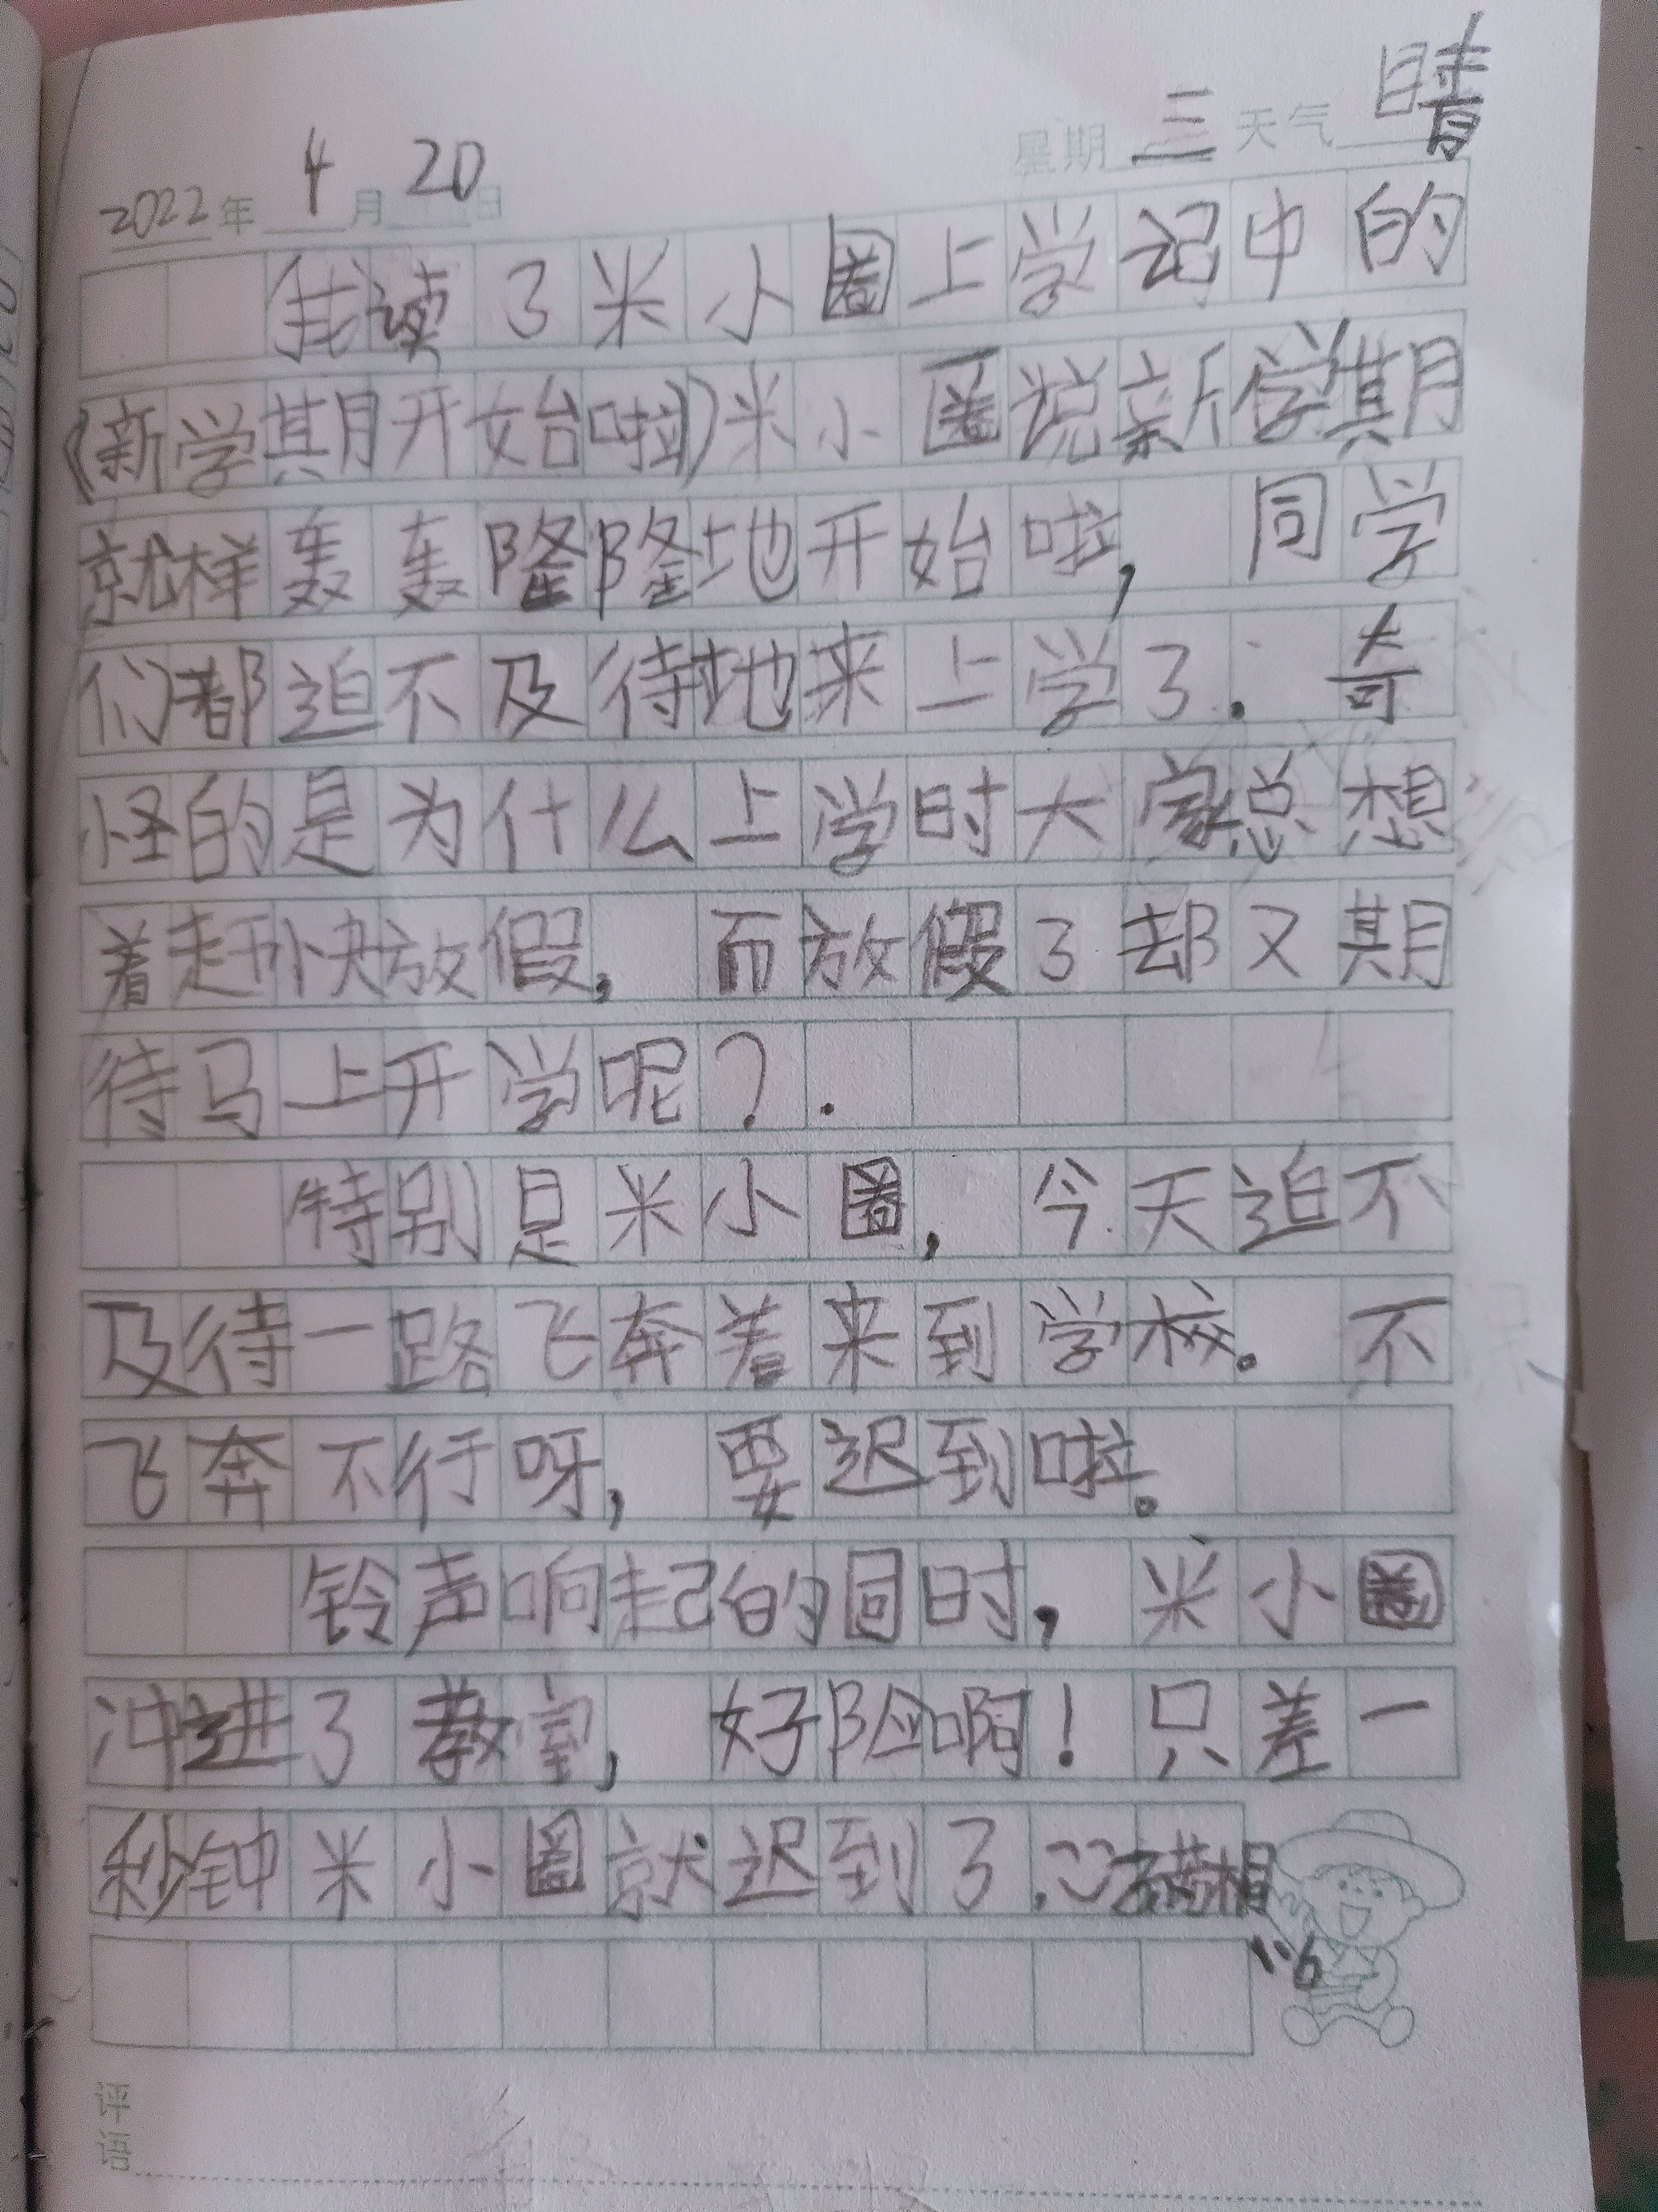 星期 三 天气 晴
2022年 4 月 20 日
我读了米小圈上学记中的
《新学期开始啦》米小圈说新学期
就样轰轰隆隆地开始啦，同学
们都迫不及待地来上学了.奇
怪的是为什么上学时大家总想
着赶快放假，而放假了却又期
待马上开学呢？.
特别是米小圈，今天迫不
及待一路飞奔着来到学校。不
飞奔不行呀，要迟到啦。
铃声响起的同时，米小圈
冲进了教室，好险啊！只差一
秒钟米小圈就迟到了.
评语